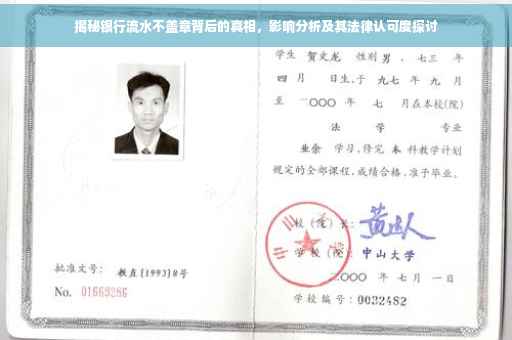 揭秘银行流水不盖章背后的真相，影响分析及其法律认可度探讨
学生 贺文龙 性别 男 ，七三 年
四 月 日生，于 九七 年 九 月
至 二〇〇〇 年 七 月在本校(院)
法 学 专业
业余 学习，修完 本 科教学计划
规定的全部课程，成绩合格，准予毕业。
校（院）长：
学 校（院）： 中山大学
批准文号： 教直[1993]8号
二〇〇〇 年 七 月 一 日
No. 01669286
学校编号：0032482